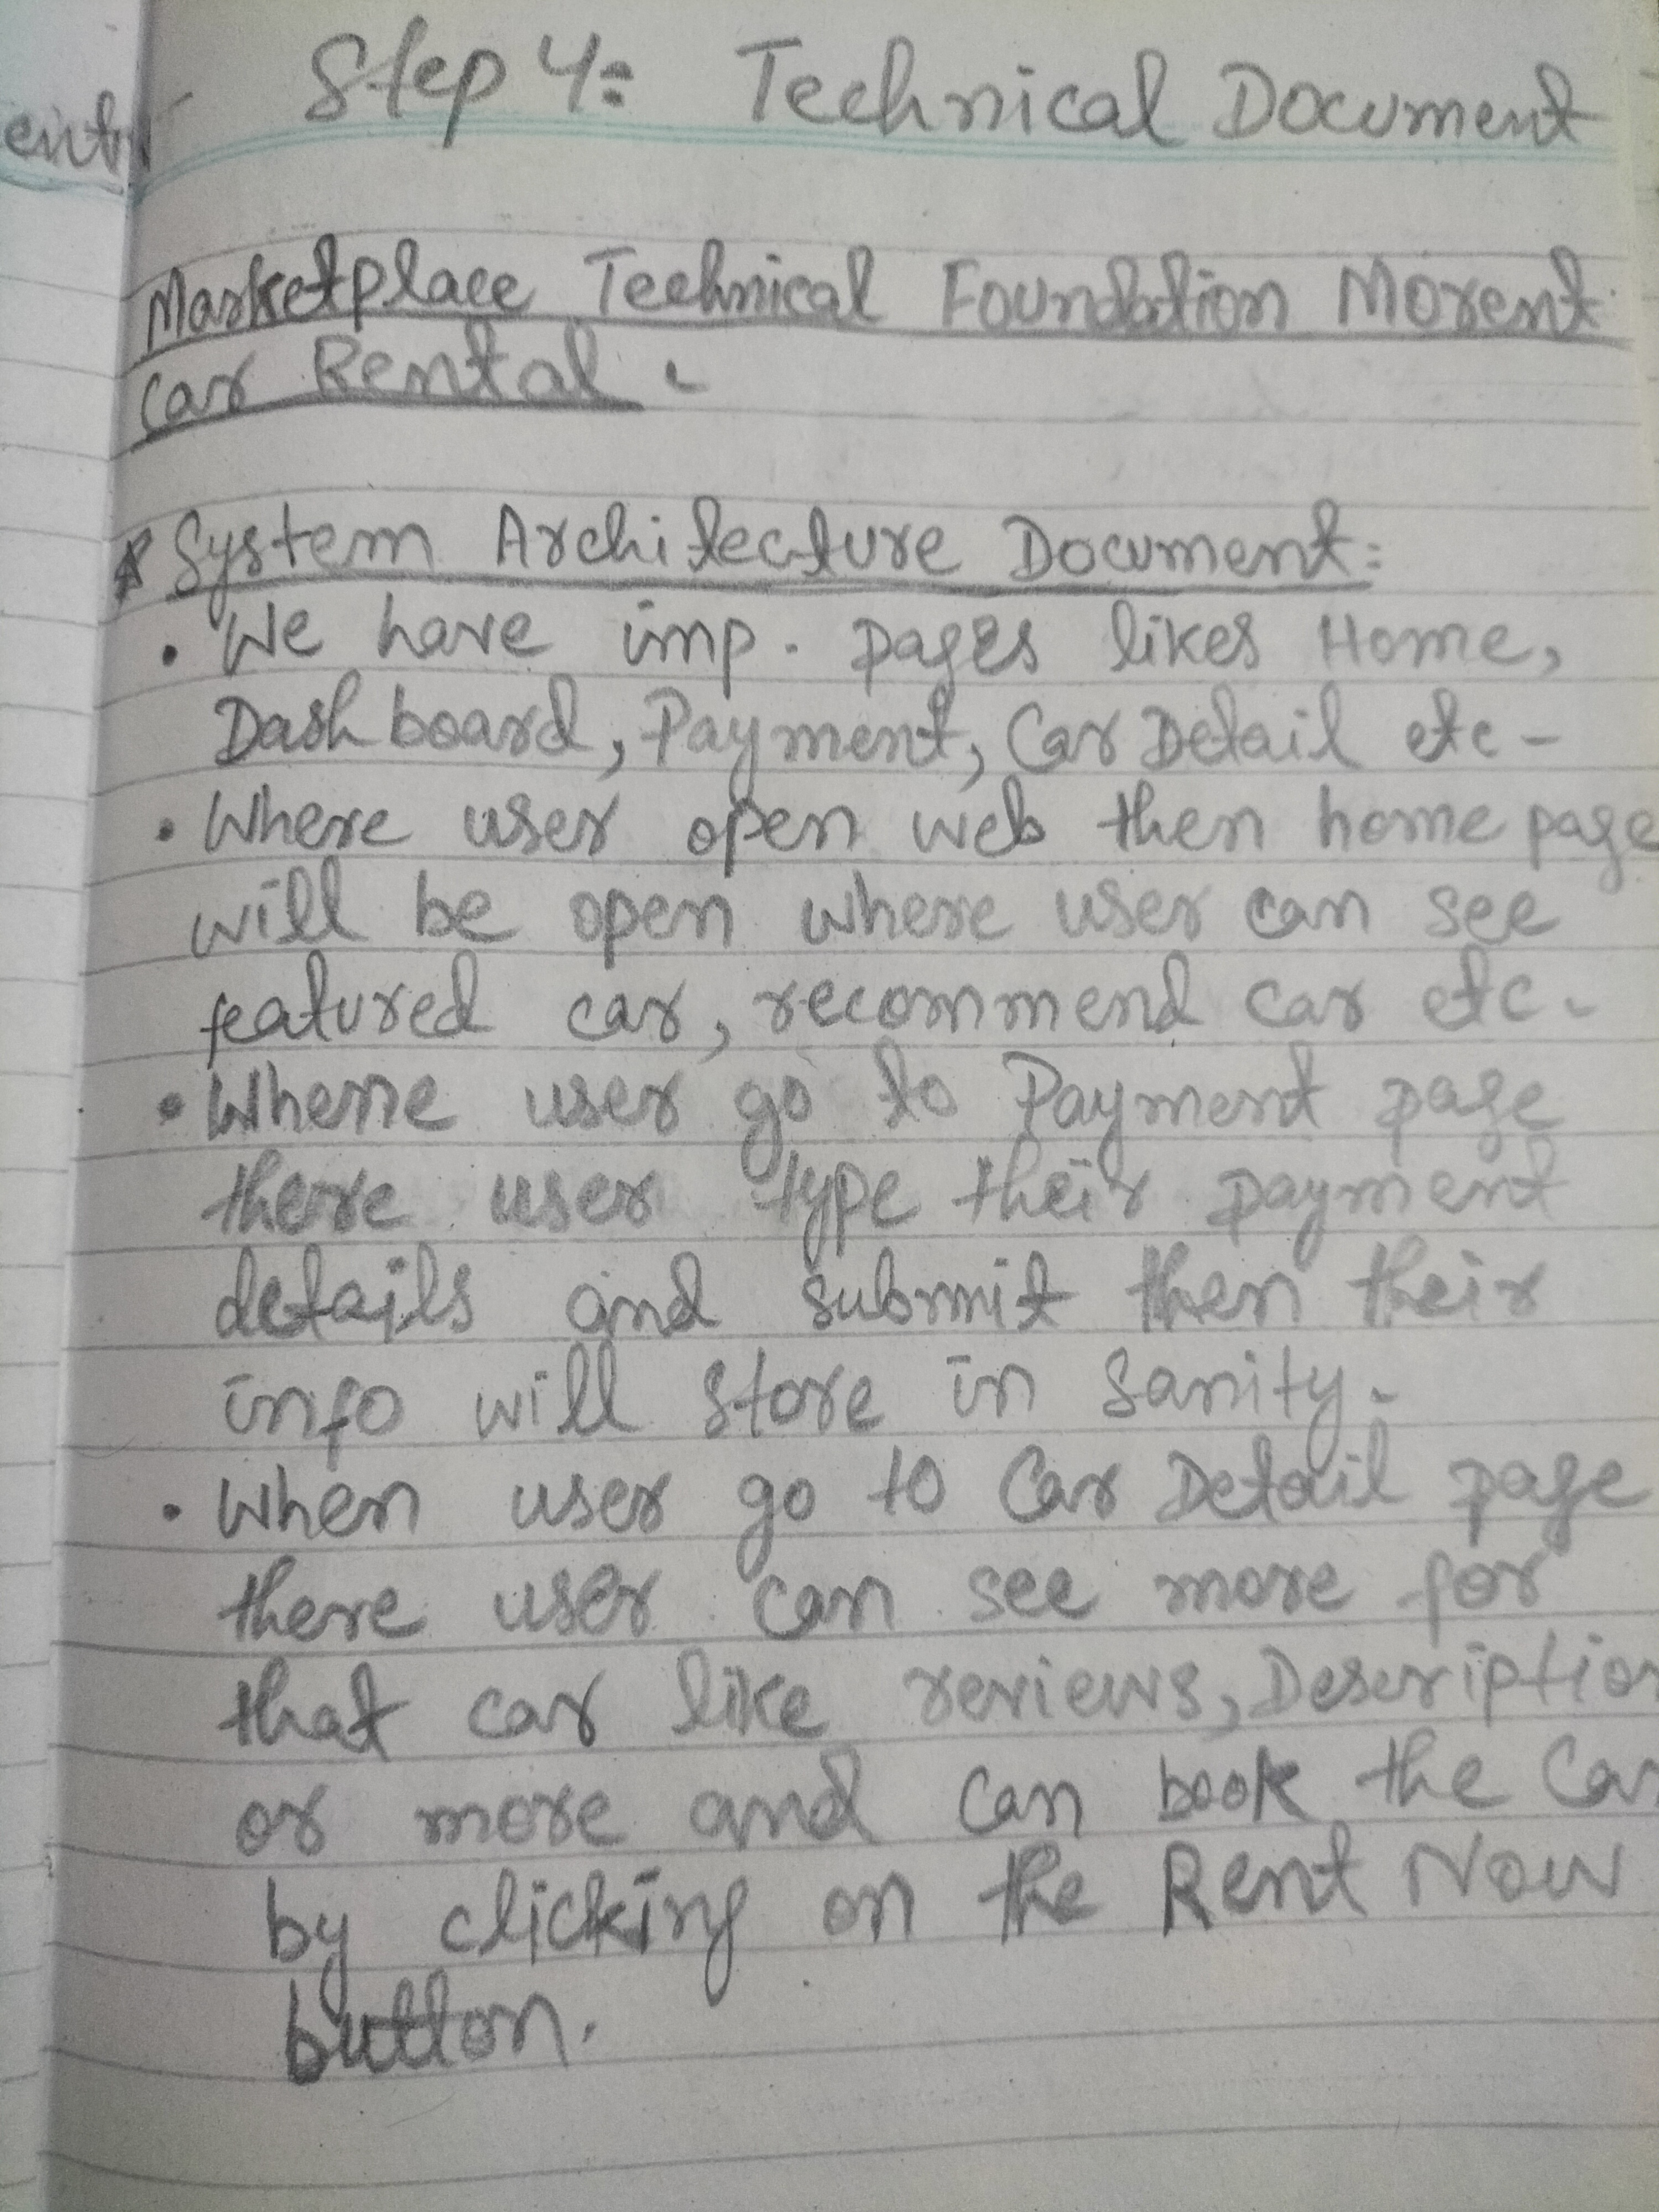 Step 4: Technical Document
ent
Marketplace Technical Foundation Morent
Car Rental.
* System Architecture Document:
• We have imp. pages likes Home,
Dashboard, Payment, Car Detail etc-
• Where user open web then home page
will be open where user can see
featured car, recommend car etc.
• Where user go to Payment page
there user type their payment
details and submit then their
info will store in Sanity.
• When user go to Car Detail page
there user can see more for
that car like reviews, Description
or more and can book the Car
by clicking on the Rent Now
button.